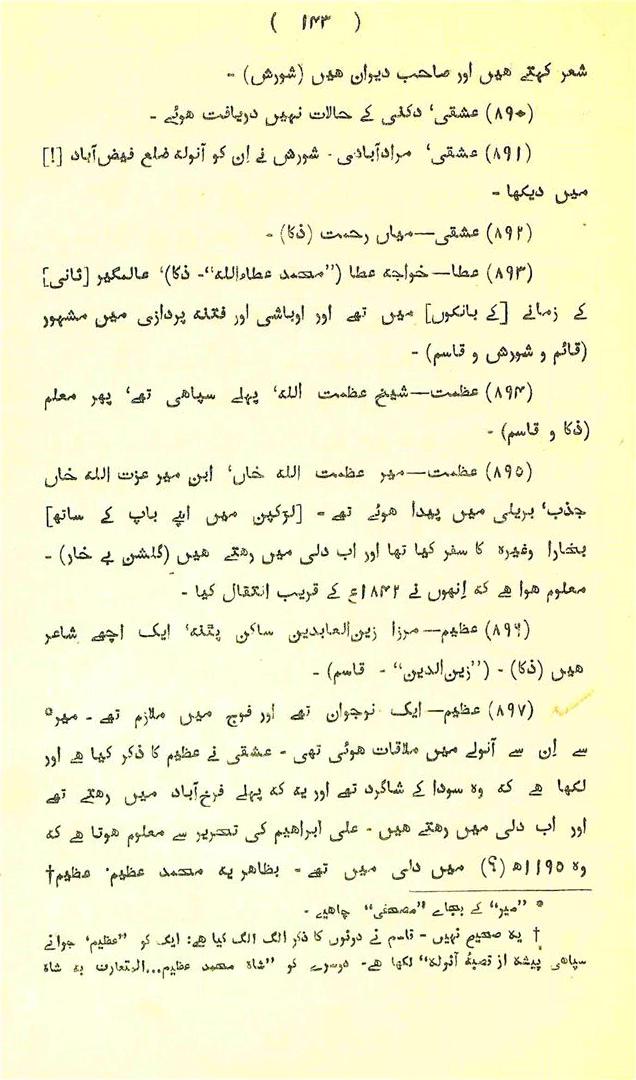 ( ۱۴۳ )
شعر کہتے ھیں اور صاحب دیوان ھیں (شورش) -
(۸۹۰) عشقی، دکنی کے حالات نہیں دریافت ھوئے -
(۸۹۱) عشقی، مرادآبادی - شورش نے اِن کو آنولہ ضلع فیض‌آباد [!]
میں دیکھا -
(۸۹۲) عشقی—میاں رحمت (ذکا) -
(۸۹۳) عطا—خواجہ عطا (”محمد عطاءاللہ“- ذکا)، عالمگیر [ثانی]
کے زمانے [کے بانکوں] میں تھے اور اوباشی اور فتنہ پردازی میں مشہور
(قائم و شورش و قاسم) -
(۸۹۴) عظمت—شیخ عظمت اللہ، پہلے سپاھی تھے، پھر معلم
(ذکا و قاسم) -
(۸۹۵) عظمت—میر عظمت اللہ خاں، ابن میر عزت اللہ خاں
جذب، بریلی میں پیدا ھوئے تھے - [لڑکپن میں اپنے باپ کے ساتھ]
بخارا وغیرہ کا سفر کیا تھا اور اب دلی میں رھتے ھیں (گلشن بے خار) -
معلوم ھوا ھے کہ اِنھوں نے ۱۸۴۲ع کے قریب انتقال کیا -
(۸۹۶) عظیم—مرزا زین‌العابدین ساکن پٹنہ، ایک اچھے شاعر
ھیں (ذکا) - (”زین‌الدین“ - قاسم) -
(۸۹۷) عظیم—ایک نوجوان تھے اور فوج میں ملازم تھے - میر*
سے اِن سے آنولے میں ملاقات ھوئی تھی - عشقی نے عظیم کا ذکر کیا ھے اور
لکھا ھے کہ وہ سودا کے شاگرد تھے اور یہ کہ پہلے فرخ‌آباد میں رھتے تھے
اور اب دلی میں رھتے ھیں - علی ابراھیم کی تحریر سے معلوم ھوتا ھے کہ
وہ ۱۱۹۵ھ (؟) میں دلی میں تھے - بظاھر یہ محمد عظیم، عظیم†
* ”میر“ کے بجاے ”مصحفی“ چاھیے -
† یہ صحیح نہیں - قاسم نے دونوں کا ذکر الگ الگ کیا ھے: ایک کو ”عظیم، جوانے
سپاھی پیشہ از قصبۂ آنولہ“ لکھا ھے- دوسرے کو ”شاہ محمد عظیم...المتعارف بہ شاہ